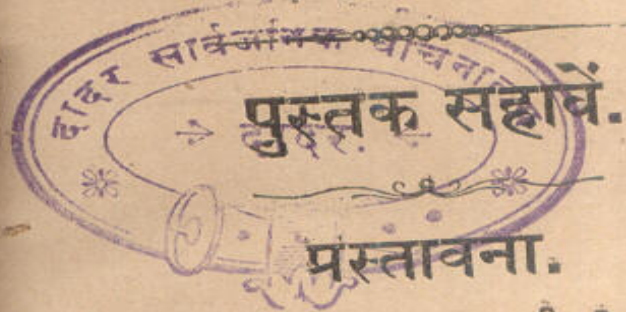 दादर सार्वजनिक वाचनालय
पुस्तक सहावें.
दादर.
प्रस्तावना.